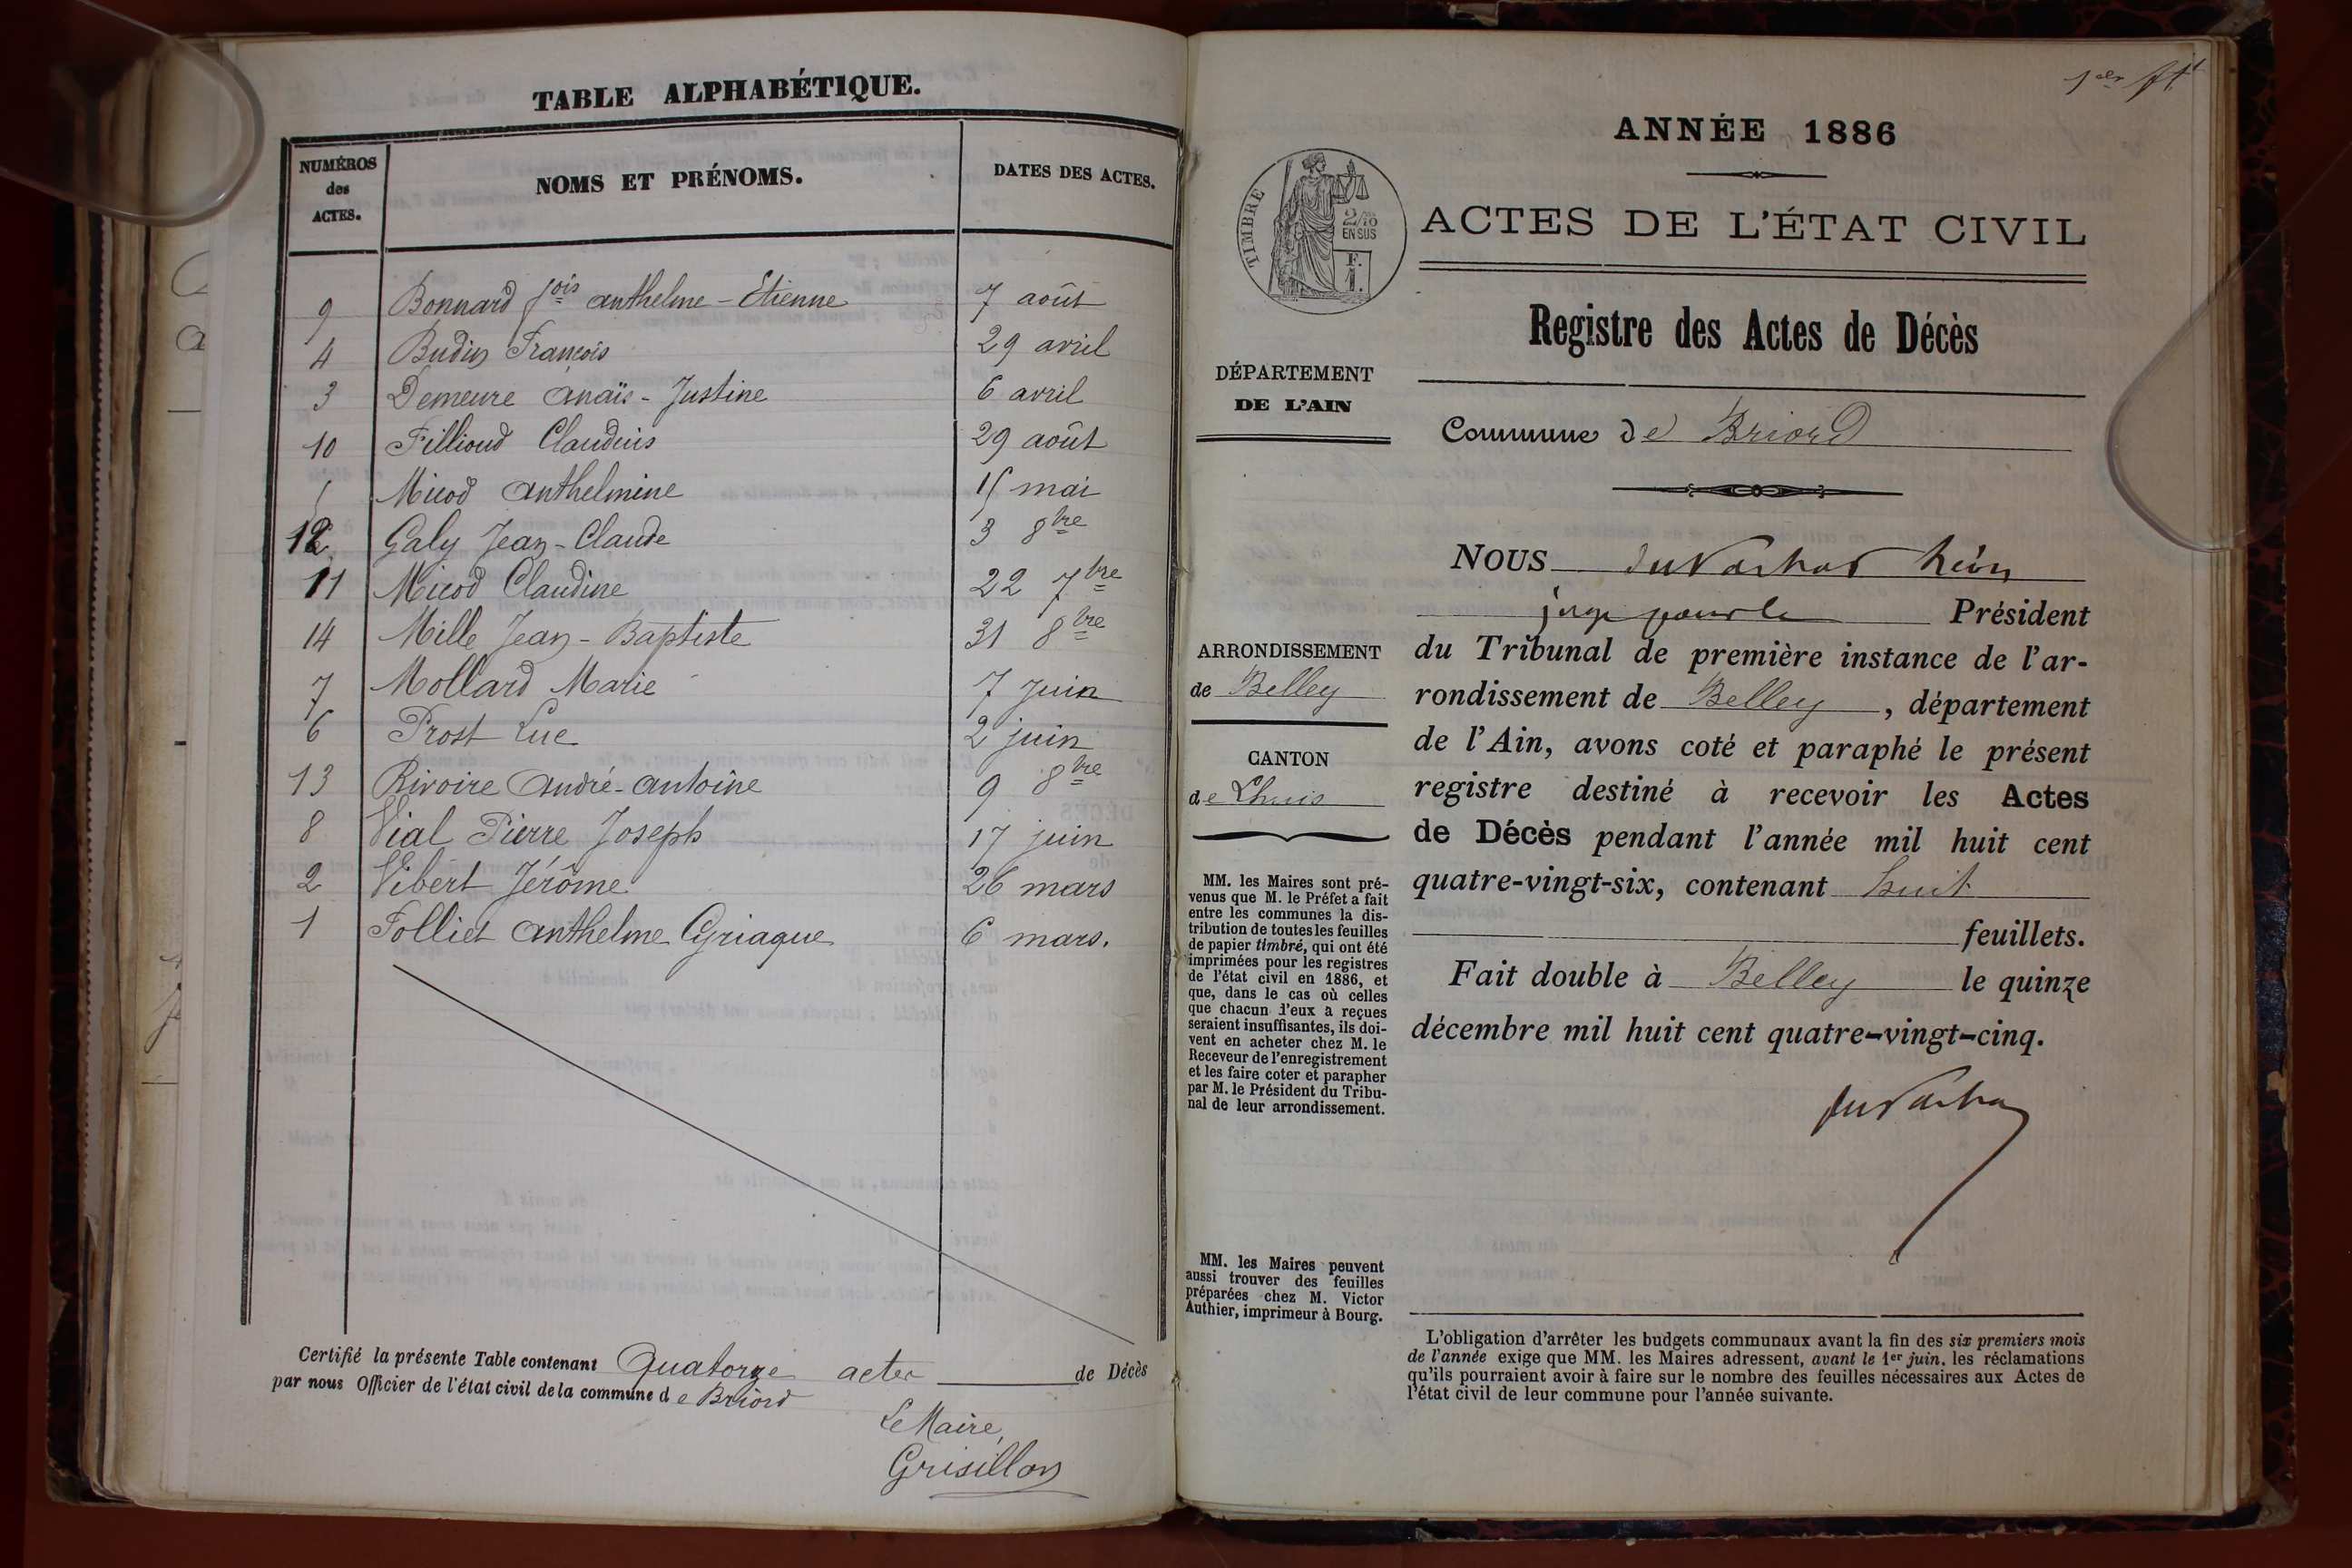 TABLE ALPHABÉTIQUE.
NUMÉROS
des
ACTES.
NOMS ET PRÉNOMS.
DATES DES ACTES.
9 Bonnard fois anthelme - Etienne 7 août
4 Budin François 29 avril
3 Demeure anaïs - Justine 6 avril
10 Fillioud Claudius 29 août
Micod anthelmine mai
12 Galy Jean - Claude 3 8bre
11 Micod Claudine 22 7bre
14 Mille Jean - Baptiste 31 8bre
7 Mollard Marie 7 juin
6 Prost Luc 2 juin
13 Rivoire André - antoine 9 8bre
8 Vial Pierre Joseph 17 juin
2 Vibert Jérôme 26 mars
1 Folliet anthelme Cyriaque 6 mars.
Certifié la présente Table contenant Quatorze actes de Décès
par nous Officier de l'état civil de la commune de Briord
Le Maire,
Grisillon
1er ft
ANNÉE 1886
TIMBRE
2/10
EN SUS
F.
1.
ACTES DE L'ÉTAT CIVIL
Registre des Actes de Décès
DÉPARTEMENT
DE L'AIN
Commune de Briord
ARRONDISSEMENT
de Belley
CANTON
de Lhuis
MM. les Maires sont pré-
venus que M. le Préfet a fait
entre les communes la dis-
tribution de toutes les feuilles
de papier timbré, qui ont été
imprimées pour les registres
de l'état civil en 1886, et
que, dans le cas où celles
que chacun d'eux a reçues
seraient insuffisantes, ils doi-
vent en acheter chez M. le
Receveur de l'enregistrement
et les faire coter et parapher
par M. le Président du Tribu-
nal de leur arrondissement.
MM. les Maires peuvent
aussi trouver des feuilles
préparées chez M. Victor
Authier, imprimeur à Bourg.
NOUS
juge pour le Président
du Tribunal de première instance de l'ar-
rondissement de Belley, département
de l'Ain, avons coté et paraphé le présent
registre destiné à recevoir les Actes
de Décès pendant l'année mil huit cent
quatre-vingt-six, contenant huit
feuillets.
Fait double à Belley le quinze
décembre mil huit cent quatre-vingt-cinq.
L'obligation d'arrêter les budgets communaux avant la fin des six premiers mois
de l'année exige que MM. les Maires adressent, avant le 1er juin, les réclamations
qu'ils pourraient avoir à faire sur le nombre des feuilles nécessaires aux Actes de
l'état civil de leur commune pour l'année suivante.